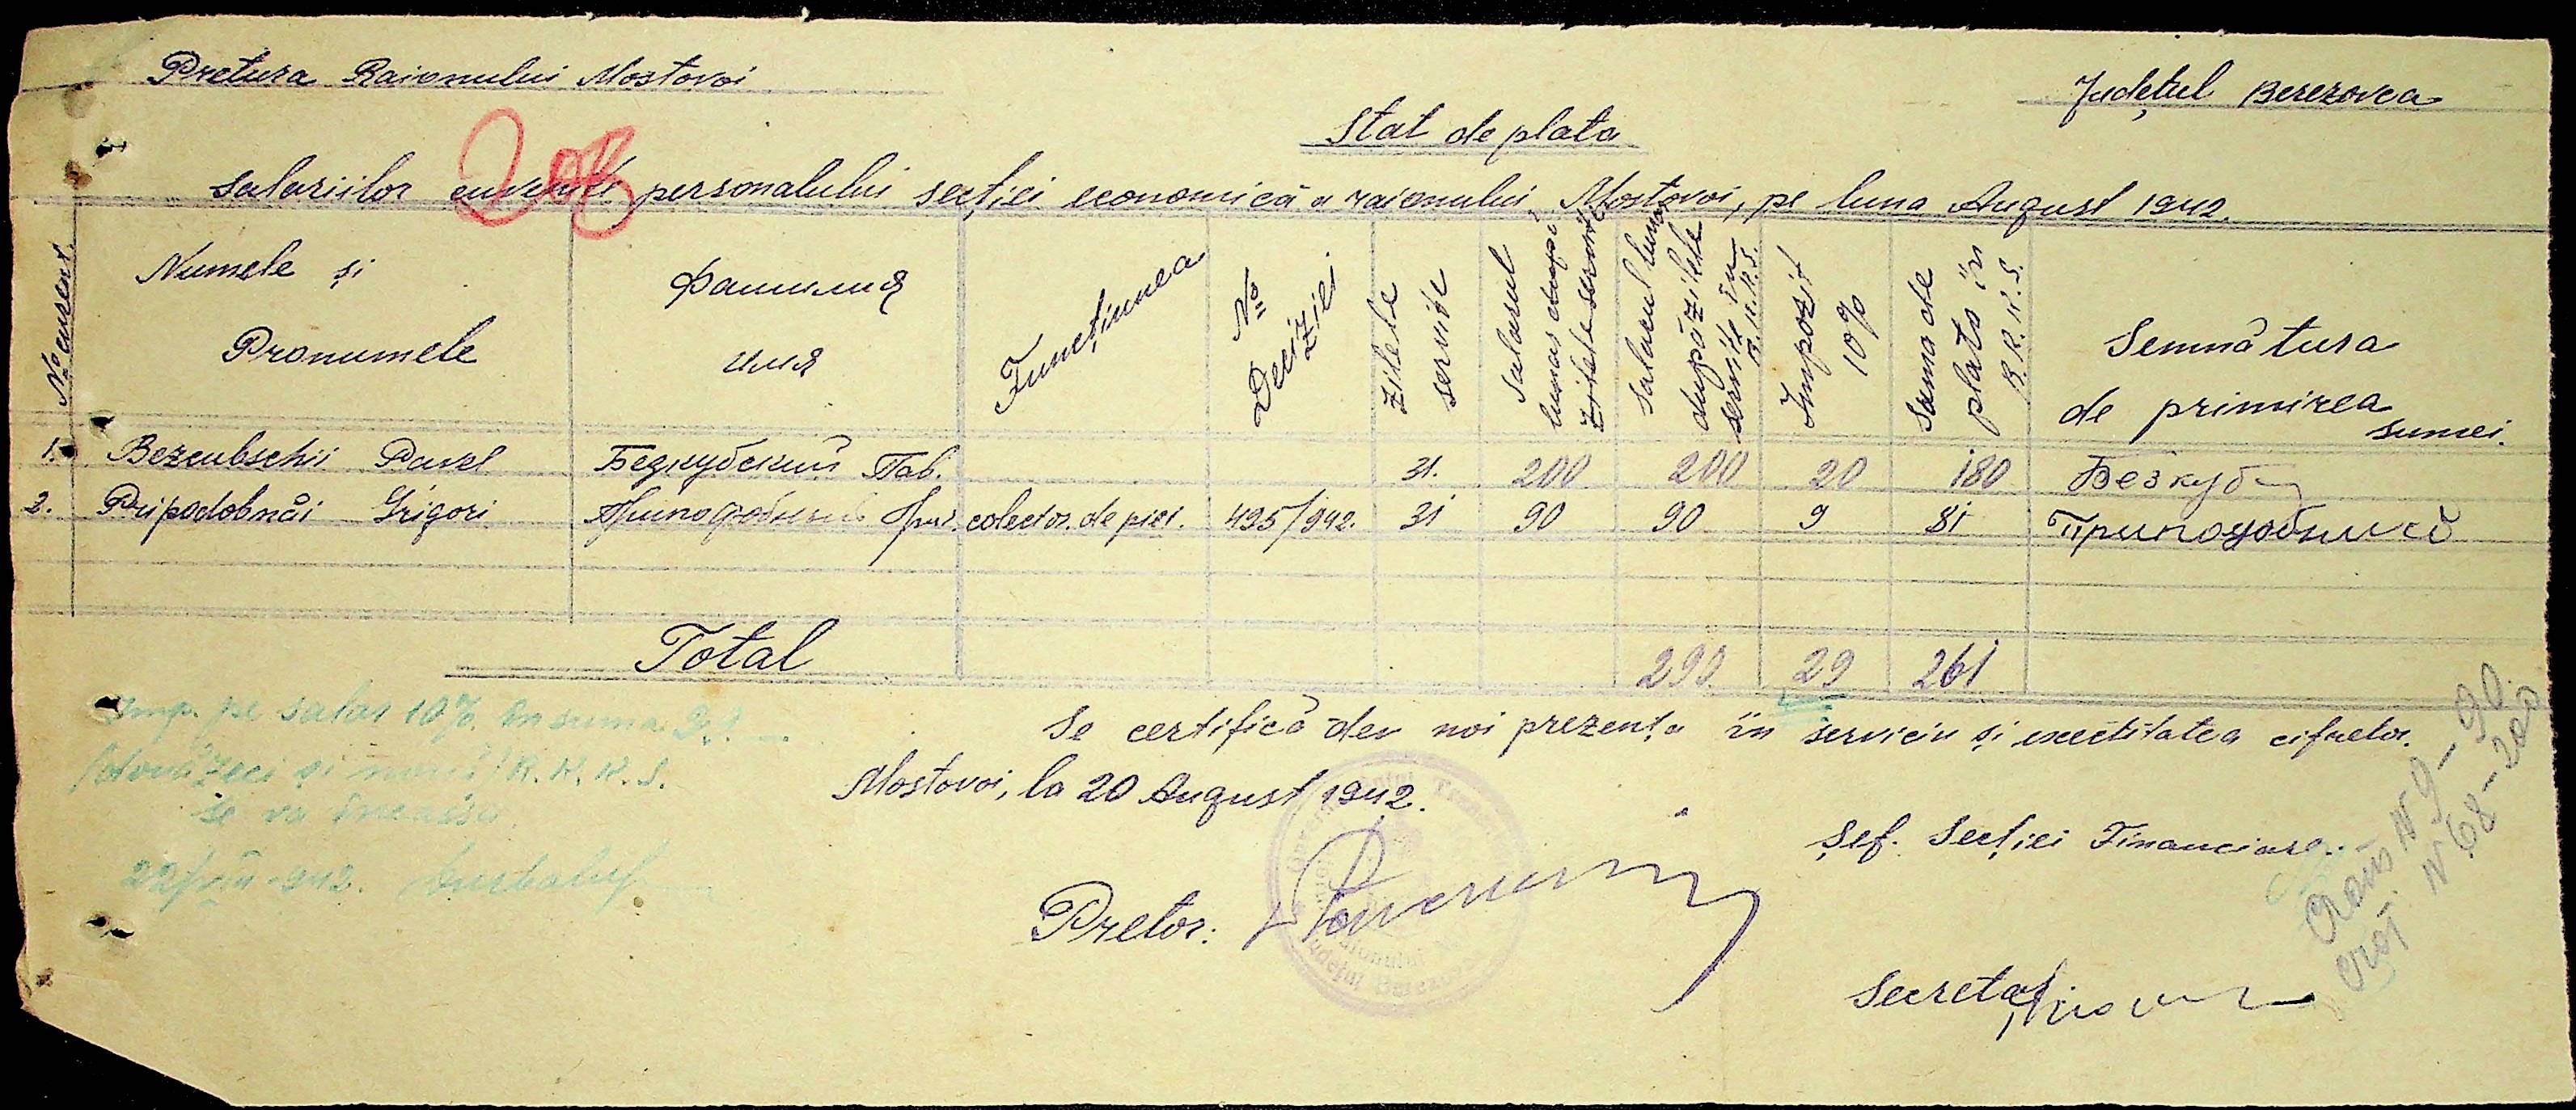 Pretura Raionului Mostovoi
Județul Berezovca
Stat de plata
208
salariilor cuvenite personalului secției economică a raionului Mostovoi, pe luna August 1942.
No curent
Numele și Pronumele
Фамилия имя
Funcțiunea
No Deciziei
Zilele servite
Salarul lunar după zilele servite
Salarul lunar după zilele servite în R.K.K.S.
Impozit 10%
Suma de plata în R.K.K.S.
Semnătura de primirea sumei.
1. Bezcubschii Pavel Безкубский Пав. 31. 200 200 20 180 Безкуб
2. Pripodobnâi Grigori Приподобный Гри. colector de piei. 495/942. 31 90 90 9 81 Приподобний
Total 290 29 261
Imp. pe salar 10% în suma 29
(două zeci și nouă) R.K.K.S.
se va încasa
22/VIII-942.
Se certifică den noi prezența în serviciu și exectitatea cifrelor.
Mostovoi, la 20 August 1942.
Pretor:
Șef. Secției Financiare.
Secretar
N 9 - 90
N 68 - 200
Raionului
Județul Berezovca